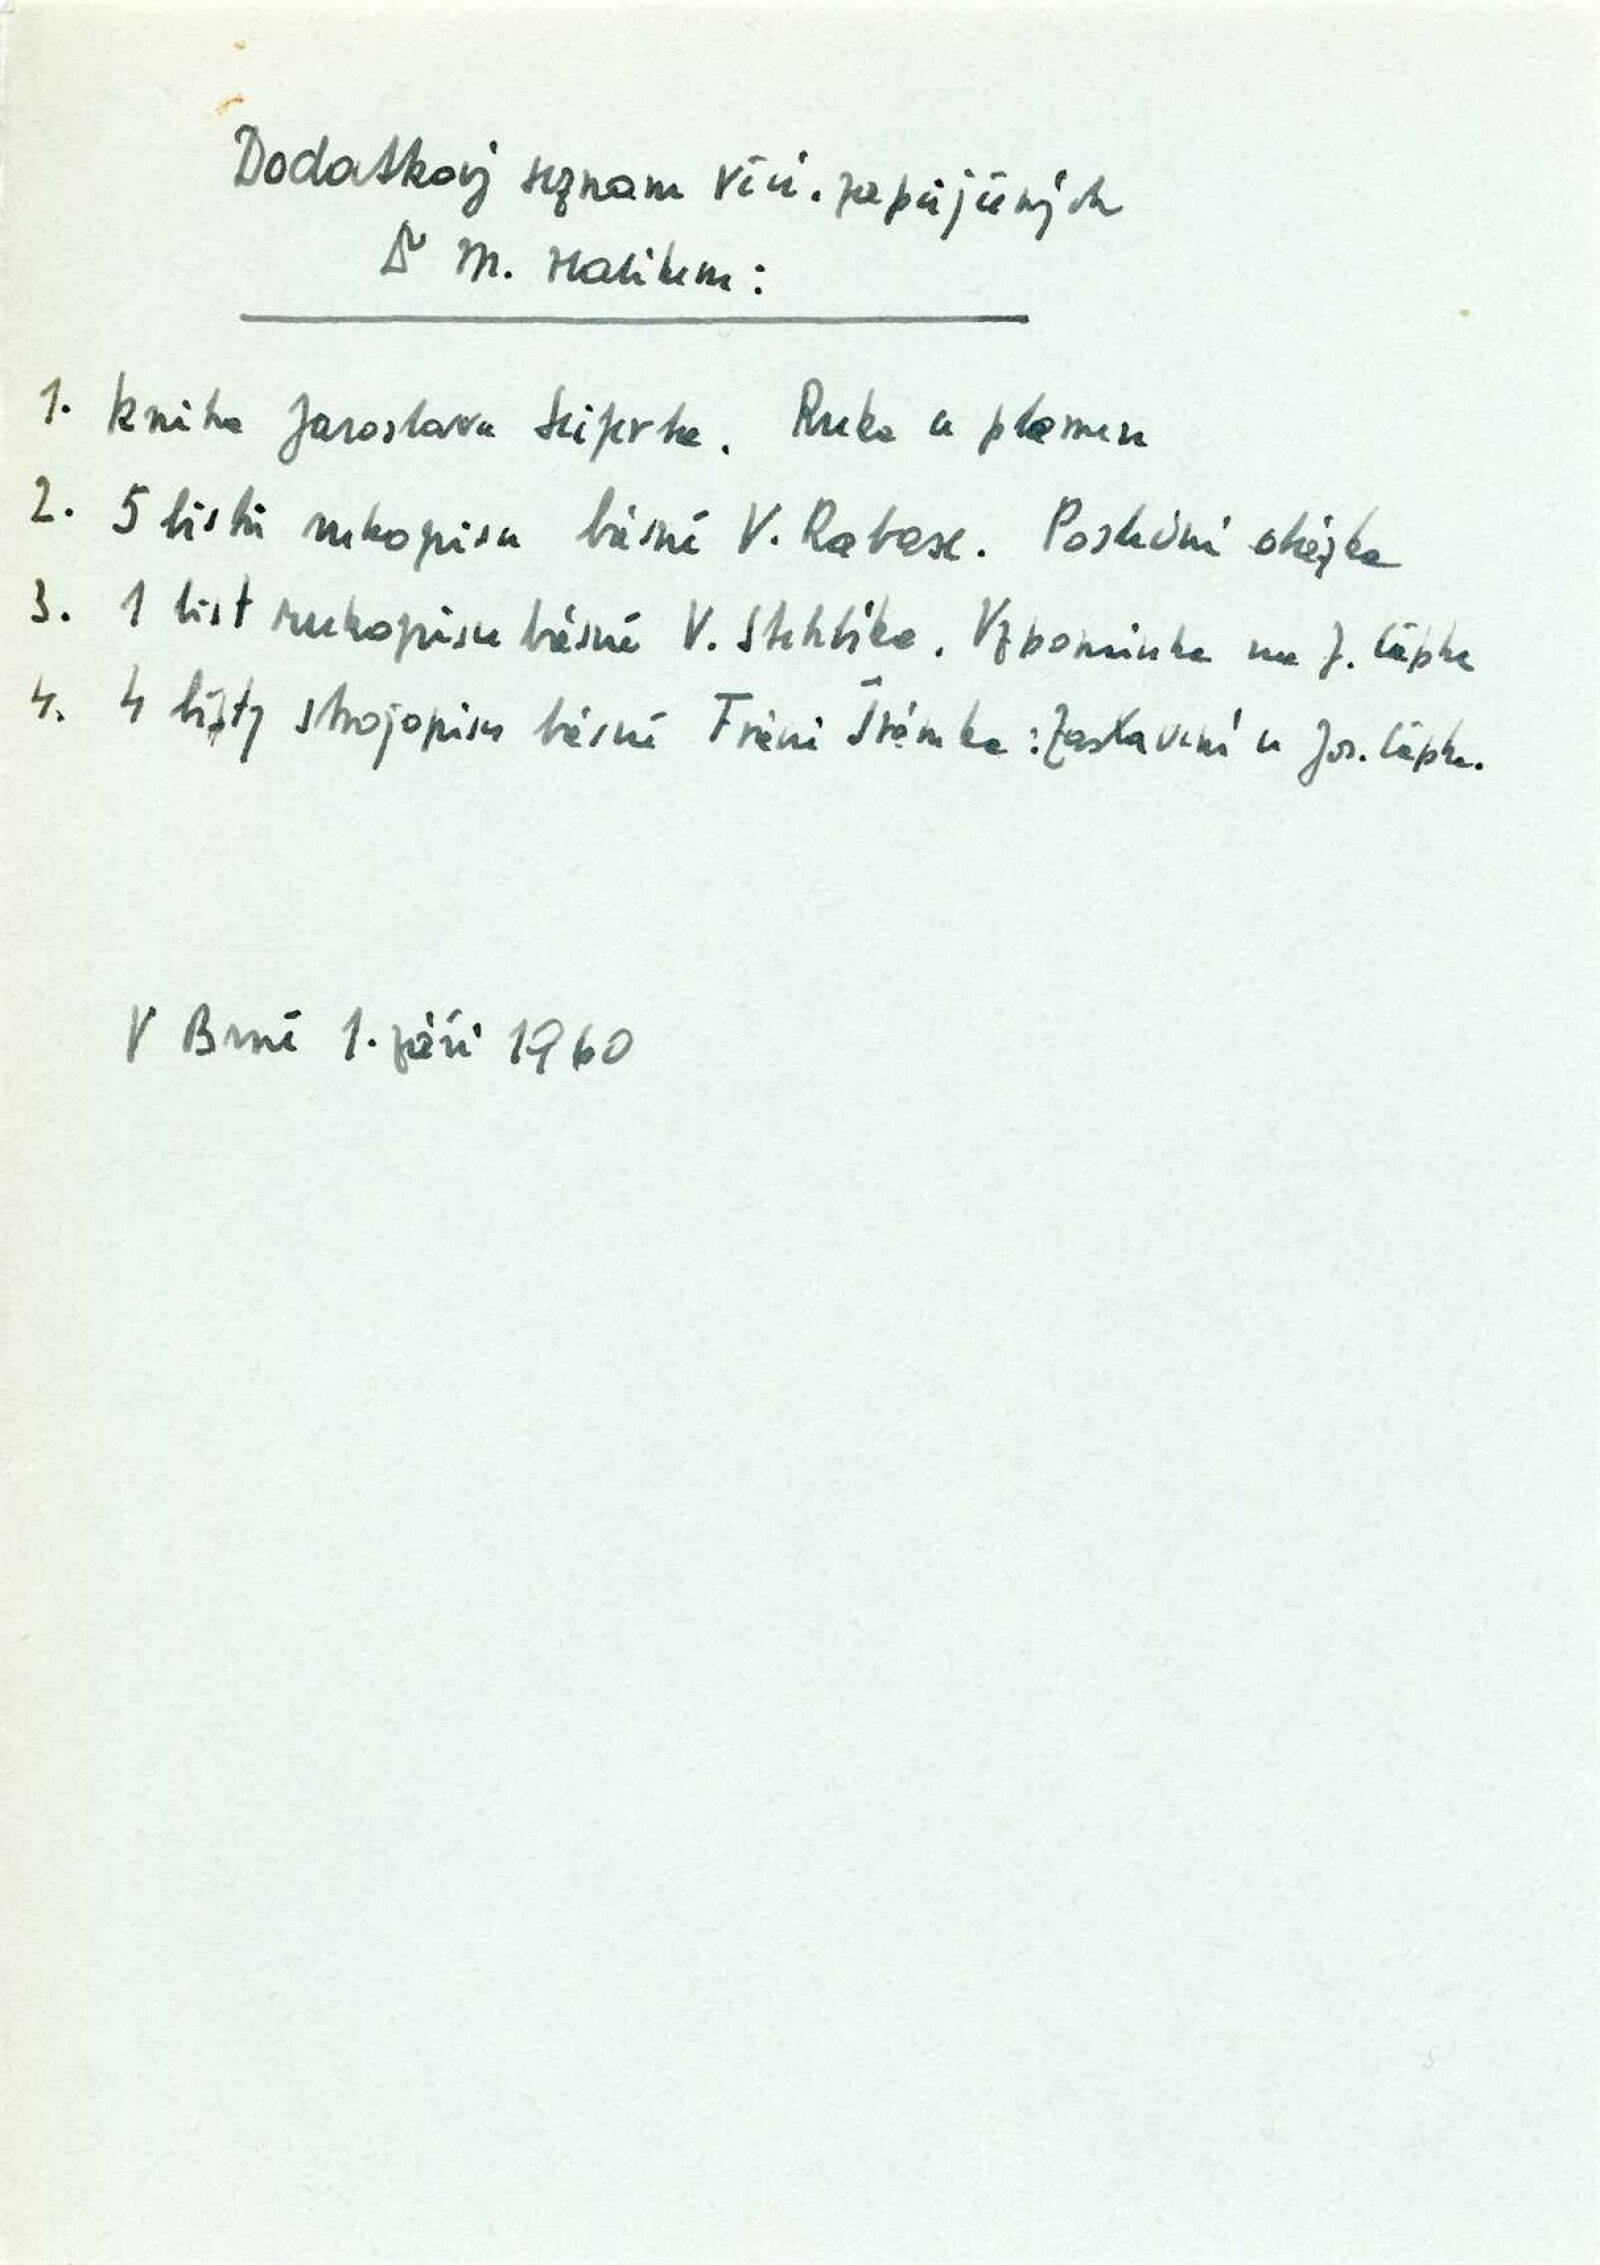 Dodatkový seznam věcí. zapůjčených
Dr M. Halíkem:
1. kniha Jaroslava Seiferta. Ruka a plamen
2. 5 listů rukopisu básně V. Rabase. Poslední otázka
3. 1 list rukopisu básně V. Stehlíka. Vzpomínka na J. Čapka
4. 4 listy strojopisu básně Fráni Šrámka: Zastavení u Jos. Čapka.
V Brně 1. září 1960